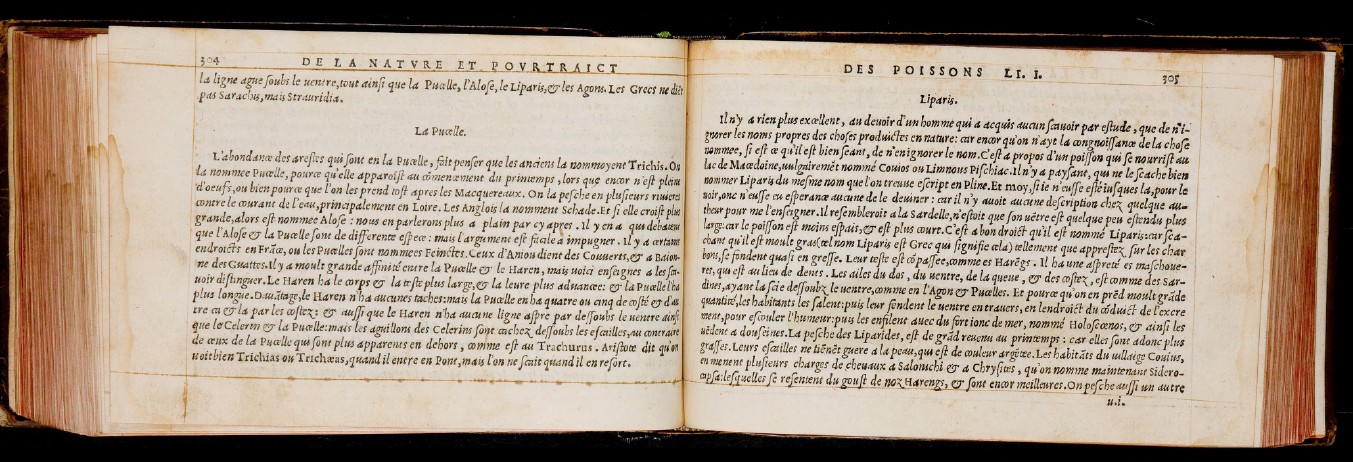 304 DE LA NATVRE ET POVRTRAICT
la ligne ague soubs le uentre, tout ainsi que la Pucelle, l'Alose, le Liparis, & les Agons. Les Grecs ne diēt
pas Sarachis, mais Strauridia.
La Pucelle.
L'abondance des arestes qui sont en la Pucelle, fait penser que les anciens la nommoyent Trichis. On
la nommee Pucelle, pource qu'elle apparoist au cōmencement du printemps, lors que encor n'est pleine
d'oeufs, ou bien pource que l'on les prend tost apres les Macquereaux. On la pesche en plusieurs riuieres
contre le courant de l'eau, principalement en Loire. Les Anglois la nomment Schade. Et si elle croist plus
grande, alors est nommee Alose: nous en parlerons plus a plain par cy apres. Il y en a qui debatent
que l'Alose & la Pucelle sont de differente espece: mais l'argument est facile a impugner. Il y a certains
endroicts en Frāce, ou les Pucelles sont nommees Feinctes. Ceux d'Aniou dient des Couuerts, & a Baion-
ne des Guattes. Il y a moult grande affinité entre la Pucelle & le Haren, mais uoici enseignes a les sca-
uoir distinguer. Le Haren ha le corps & la teste plus large, & la leure plus aduancee: & la Pucelle l'ha
plus longue. Dauātage, le Haren n'ha aucunes taches: mais la Pucelle en ha quatre ou cinq de costé & d'au
tre ca & la par les costez: & aussi que le Haren n'ha aucune ligne aspre par dessoubs le uentre ainsi
que le Celerin & la Pucelle: mais les aguillons des Celerins sont cachez dessoubs les escailles, au contraire
de ceux de la Pucelle qui sont plus apparents en dehors, comme est au Trachurus. Aristote dit qu'on
uoit bien Trichias ou Trichæas, quand il entre en Pont, mais l'on ne scait quand il en resort.
DES POISSONS LI. I. 305
Liparis.
Il n'y a rien plus excellent, au deuoir d'un homme qui a acquis aucun scauoir par estude, que de n'i-
gnorer les noms propres des choses produictes en nature: car encor qu'on n'ayt la congnoissance de la chose
nommee, si est ce qu'il est bien seant, de n'en ignorer le nom. C'est a propos d'un poisson qui se nourrist au
lac de Macedoine, uulgairemēt nommé Couios ou Limnous Pischiac. Il n'y a paysant, qui ne le sçache bien
nommer Liparis du mesme nom que l'on treuue escript en Pline. Et moy, si ie n'eusse esté iusques la, pour le
uoir, onc n'eusse eu esperance aucune de le deuiner: car il n'y auoit aucune description chez quelque au-
theur pour me l'enseigner. Il resembleroit a la Sardelle, n'estoit que son uētre est quelque peu estendu plus
large: car le poisson est moins espais, & est plus court. C'est a bon droict qu'il est nommé Liparis: car sca-
chant qu'il est moult gras (cel nom Liparis est Grec qui signifie cela) tellement que apprestez sur les char
bons, se fondent quasi en gresse. Leur teste est cōpassee, comme es Harēgs. Il ha une aspreté es maschoue-
res, qui est au lieu de dents. Les ailes du dos, du uentre, de la queue, & des costez, est comme des Sar-
dines, ayant la scie dessoubz le uentre, comme en l'Agon & Pucelles. Et pource qu'on en prēd moult grāde
quantité, les habitants les salent: puis leur fendent le uentre en trauers, en l'endroict du cōduict de l'excre
ment, pour escouler l'humeur: puis les enfilent auec du fort ionc de mer, nommé Holoscœnos, & ainsi les
uēdent a douseines. La pesche des Liparides, est de grād reuenu au printemps: car elles sont adonc plus
grasses. Leurs escailles ne tiēnēt guere a la peau, qui est de couleur argētee. Les habitāts du uillaige Couius,
en menent plusieurs charges de cheuaux a Salonichi & a Chrysites, qu'on nomme maintenant Sidero-
capsa: lesquelles se resentent du goust de noz Harengs, & sont encor meilleures. On pesche aussi un autre
u.i.